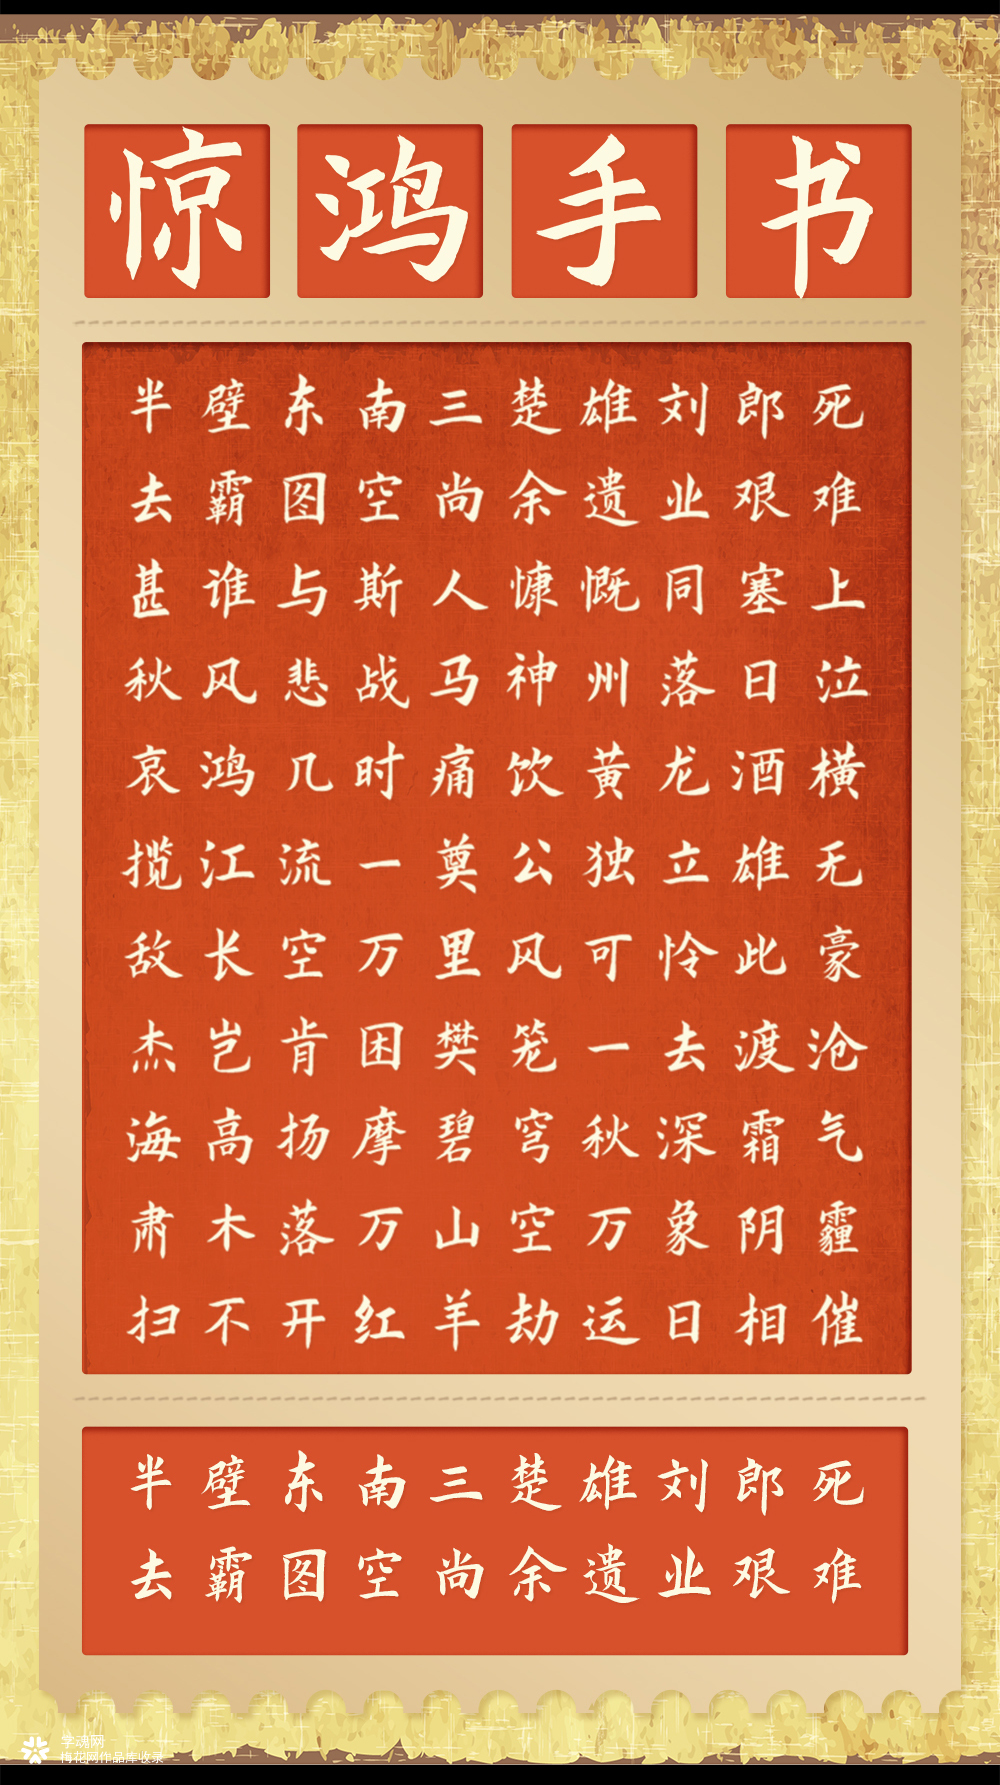 惊鸿手书
半壁东南三楚雄刘郎死
去霸图空尚余遗业艰难
甚谁与斯人慷慨同塞上
秋风悲战马神州落日泣
哀鸿几时痛饮黄龙酒横
揽江流一奠公独立雄无
敌长空万里风可怜此豪
杰岂肯困樊笼一去渡沧
海高扬摩碧穹秋深霜气
肃木落万山空万象阴霾
扫不开红羊劫运日相催
半壁东南三楚雄刘郎死
去霸图空尚余遗业艰难
字魂网
梅花网作品库收录